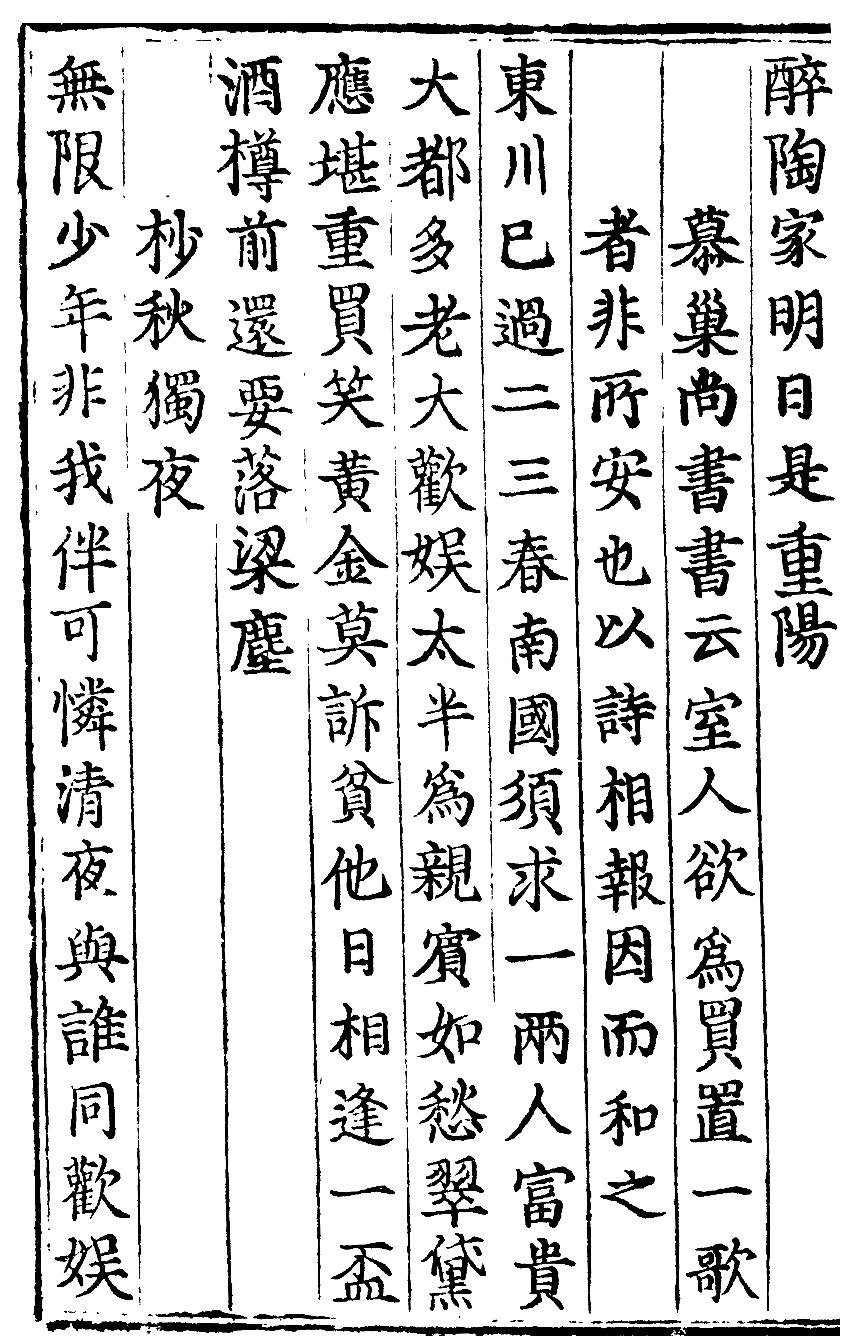 醉陶家明日是重陽
慕巢尚書書云室人欲爲買置一歌
者非所安也以詩相報因而和之
東川已過二三春南國須求一兩人富貴
大都多老大歡娱太半爲親賓如愁翠黛
應堪重買笑黄金莫訴貧他日相逢一盃
酒樽前還要落梁塵
杪秋獨夜
無限少年非我伴可憐清夜與誰同歡娱